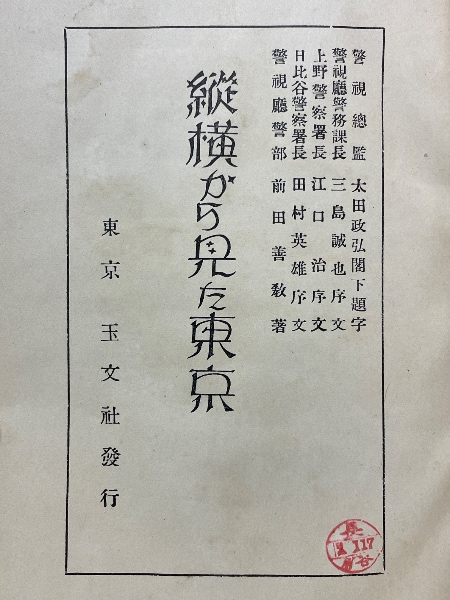 警視總監 太田政弘閣下題字
警視廳警務課長 三島誠也序文
上野警察署長 江口治序文
日比谷警察署長 田村英雄序文
警視廳警部 前田善敎著
縱横から見た東京
東京 玉文社發行
長
117
谷